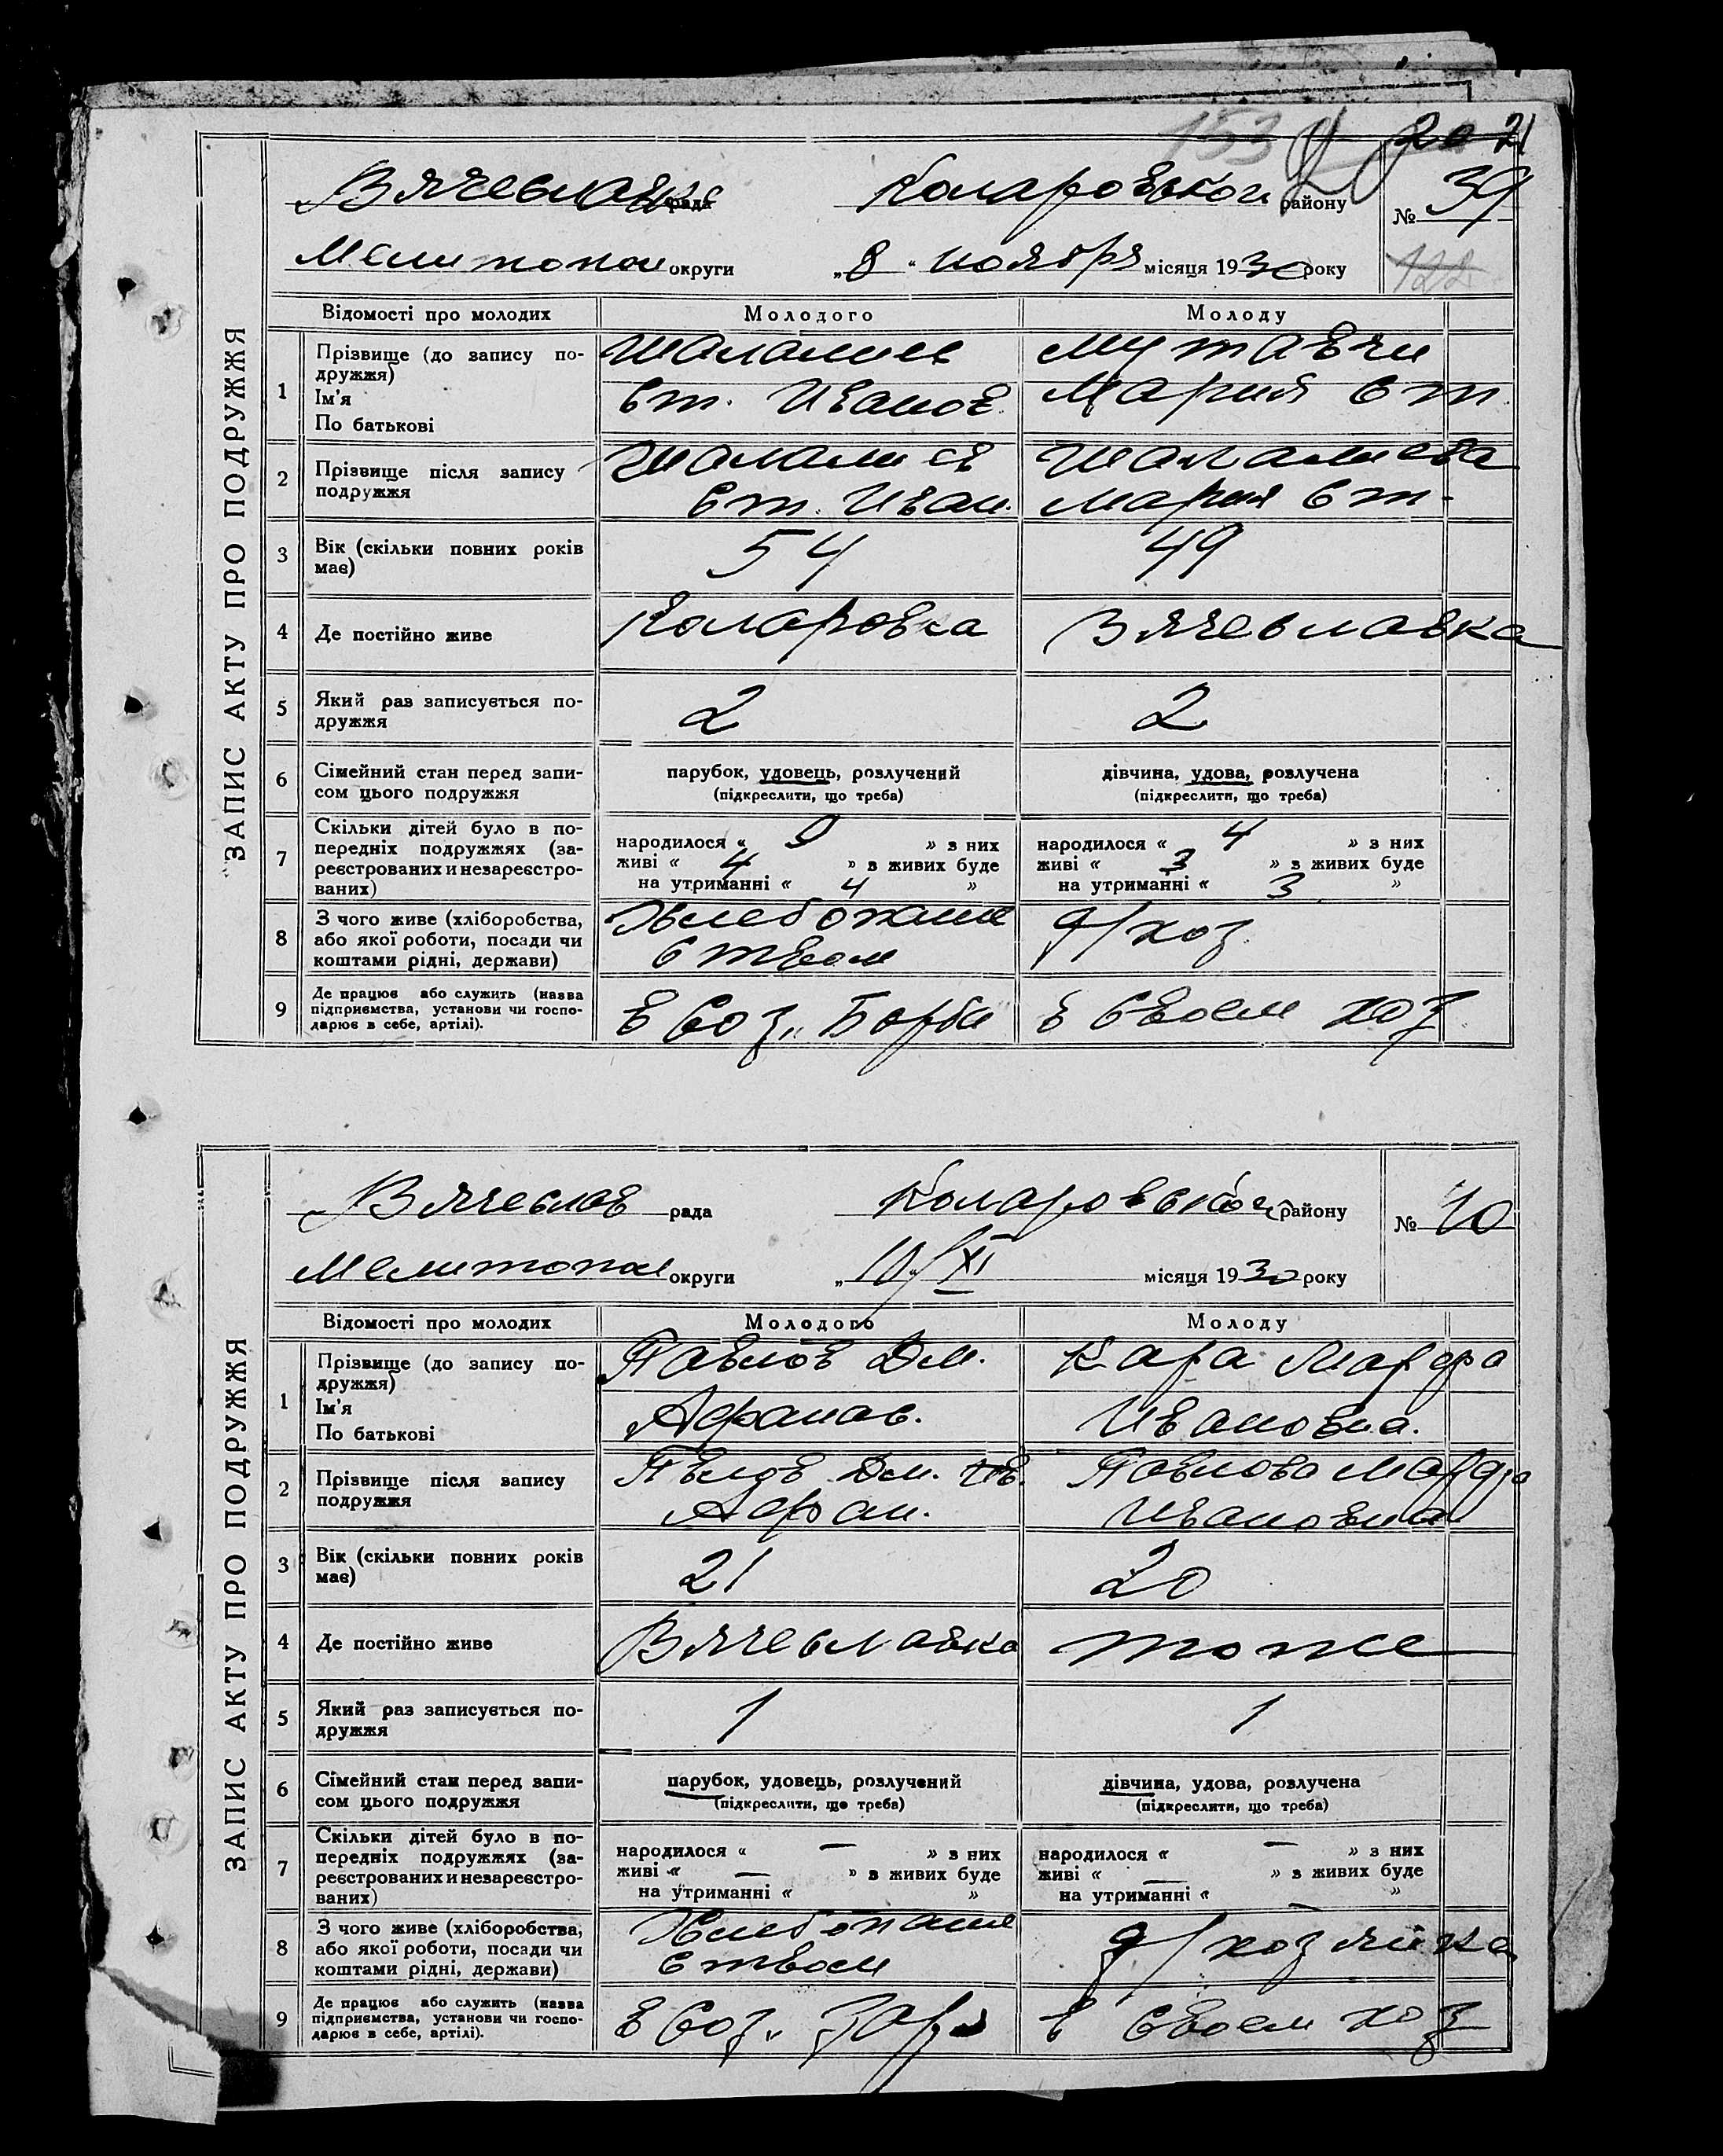 153 20 21
Вячеславс рада Коларовской району № 39
Мелитопол округи „8“ ноября місяця 1930 року 122
ЗАПИС АКТУ ПРО ПОДРУЖЖЯ
Відомості про молодих Молодого Молоду
1 Прізвище (до запису по- Шаламиев Мутавчи
дружжя)
Ім'я Ст. Иванов. Мария Ст.
По батькові
2 Прізвище після запису Шаламиев Шаламиева
подружжя Ст. Иван. Мария Ст.
3 Вік (скільки повних років 54 49
має)
4 Де постійно живе Коларовка Вячеславка
5 Який раз записується по- 2 2
дружжя
6 Сімейний стан перед запи- парубок, удовець, розлучений дівчина, удова, розлучена
сом цього подружжя (підкреслити, що треба) (підкреслити, що треба)
7 Скільки дітей було в по-
передніх подружжях (за- народилося « 9 » з них народилося « 4 » з них
реєстрованих и незареєстро- живі « 4 » з живих буде живі « 3 » з живих буде
ваних) на утриманні « 4 » на утриманні « 3 »
8 З чого живе (хліборобства, Хлебопаше д/хоз.
або якої роботи, посади чи ством
коштами рідні, держави)
9 Де працює або служить (назва в Соз. „Борби в своем хоз.
підприємства, установи чи госпо-
дарює в себе, артілі).
Вячеслав рада Коларовской району № 40
Мелитопол округи „10“/XI місяця 1930 року
ЗАПИС АКТУ ПРО ПОДРУЖЖЯ
Відомості про молодих Молодого Молоду
1 Прізвище (до запису по- Павлов Дм. Кара Марфа
дружжя)
Ім'я Афанас. Ивановна.
По батькові
2 Прізвище після запису Пвлов Дм. Ив. Павлова Марфа
подружжя Афан. Ивановна
3 Вік (скільки повних років 21 20
має)
4 Де постійно живе Вячеславка тоже
5 Який раз записується по- 1 1
дружжя
6 Сімейний стан перед запи- парубок, удовець, розлучений дівчина, удова, розлучена
сом цього подружжя (підкреслити, що треба) (підкреслити, що треба)
7 Скільки дітей було в по-
передніх подружжях (за- народилося « — » з них народилося « — » з них
реєстрованих и незареєстро- живі « — » з живих буде живі « — » з живих буде
ваних) на утриманні « » на утриманні « »
8 З чого живе (хліборобства, Хлебопаше д/хозяйка
або якої роботи, посади чи ством
коштами рідні, держави)
9 Де працює або служить (назва в Соз. „Заря в своем хоз
підприємства, установи чи госпо-
дарює в себе, артілі).